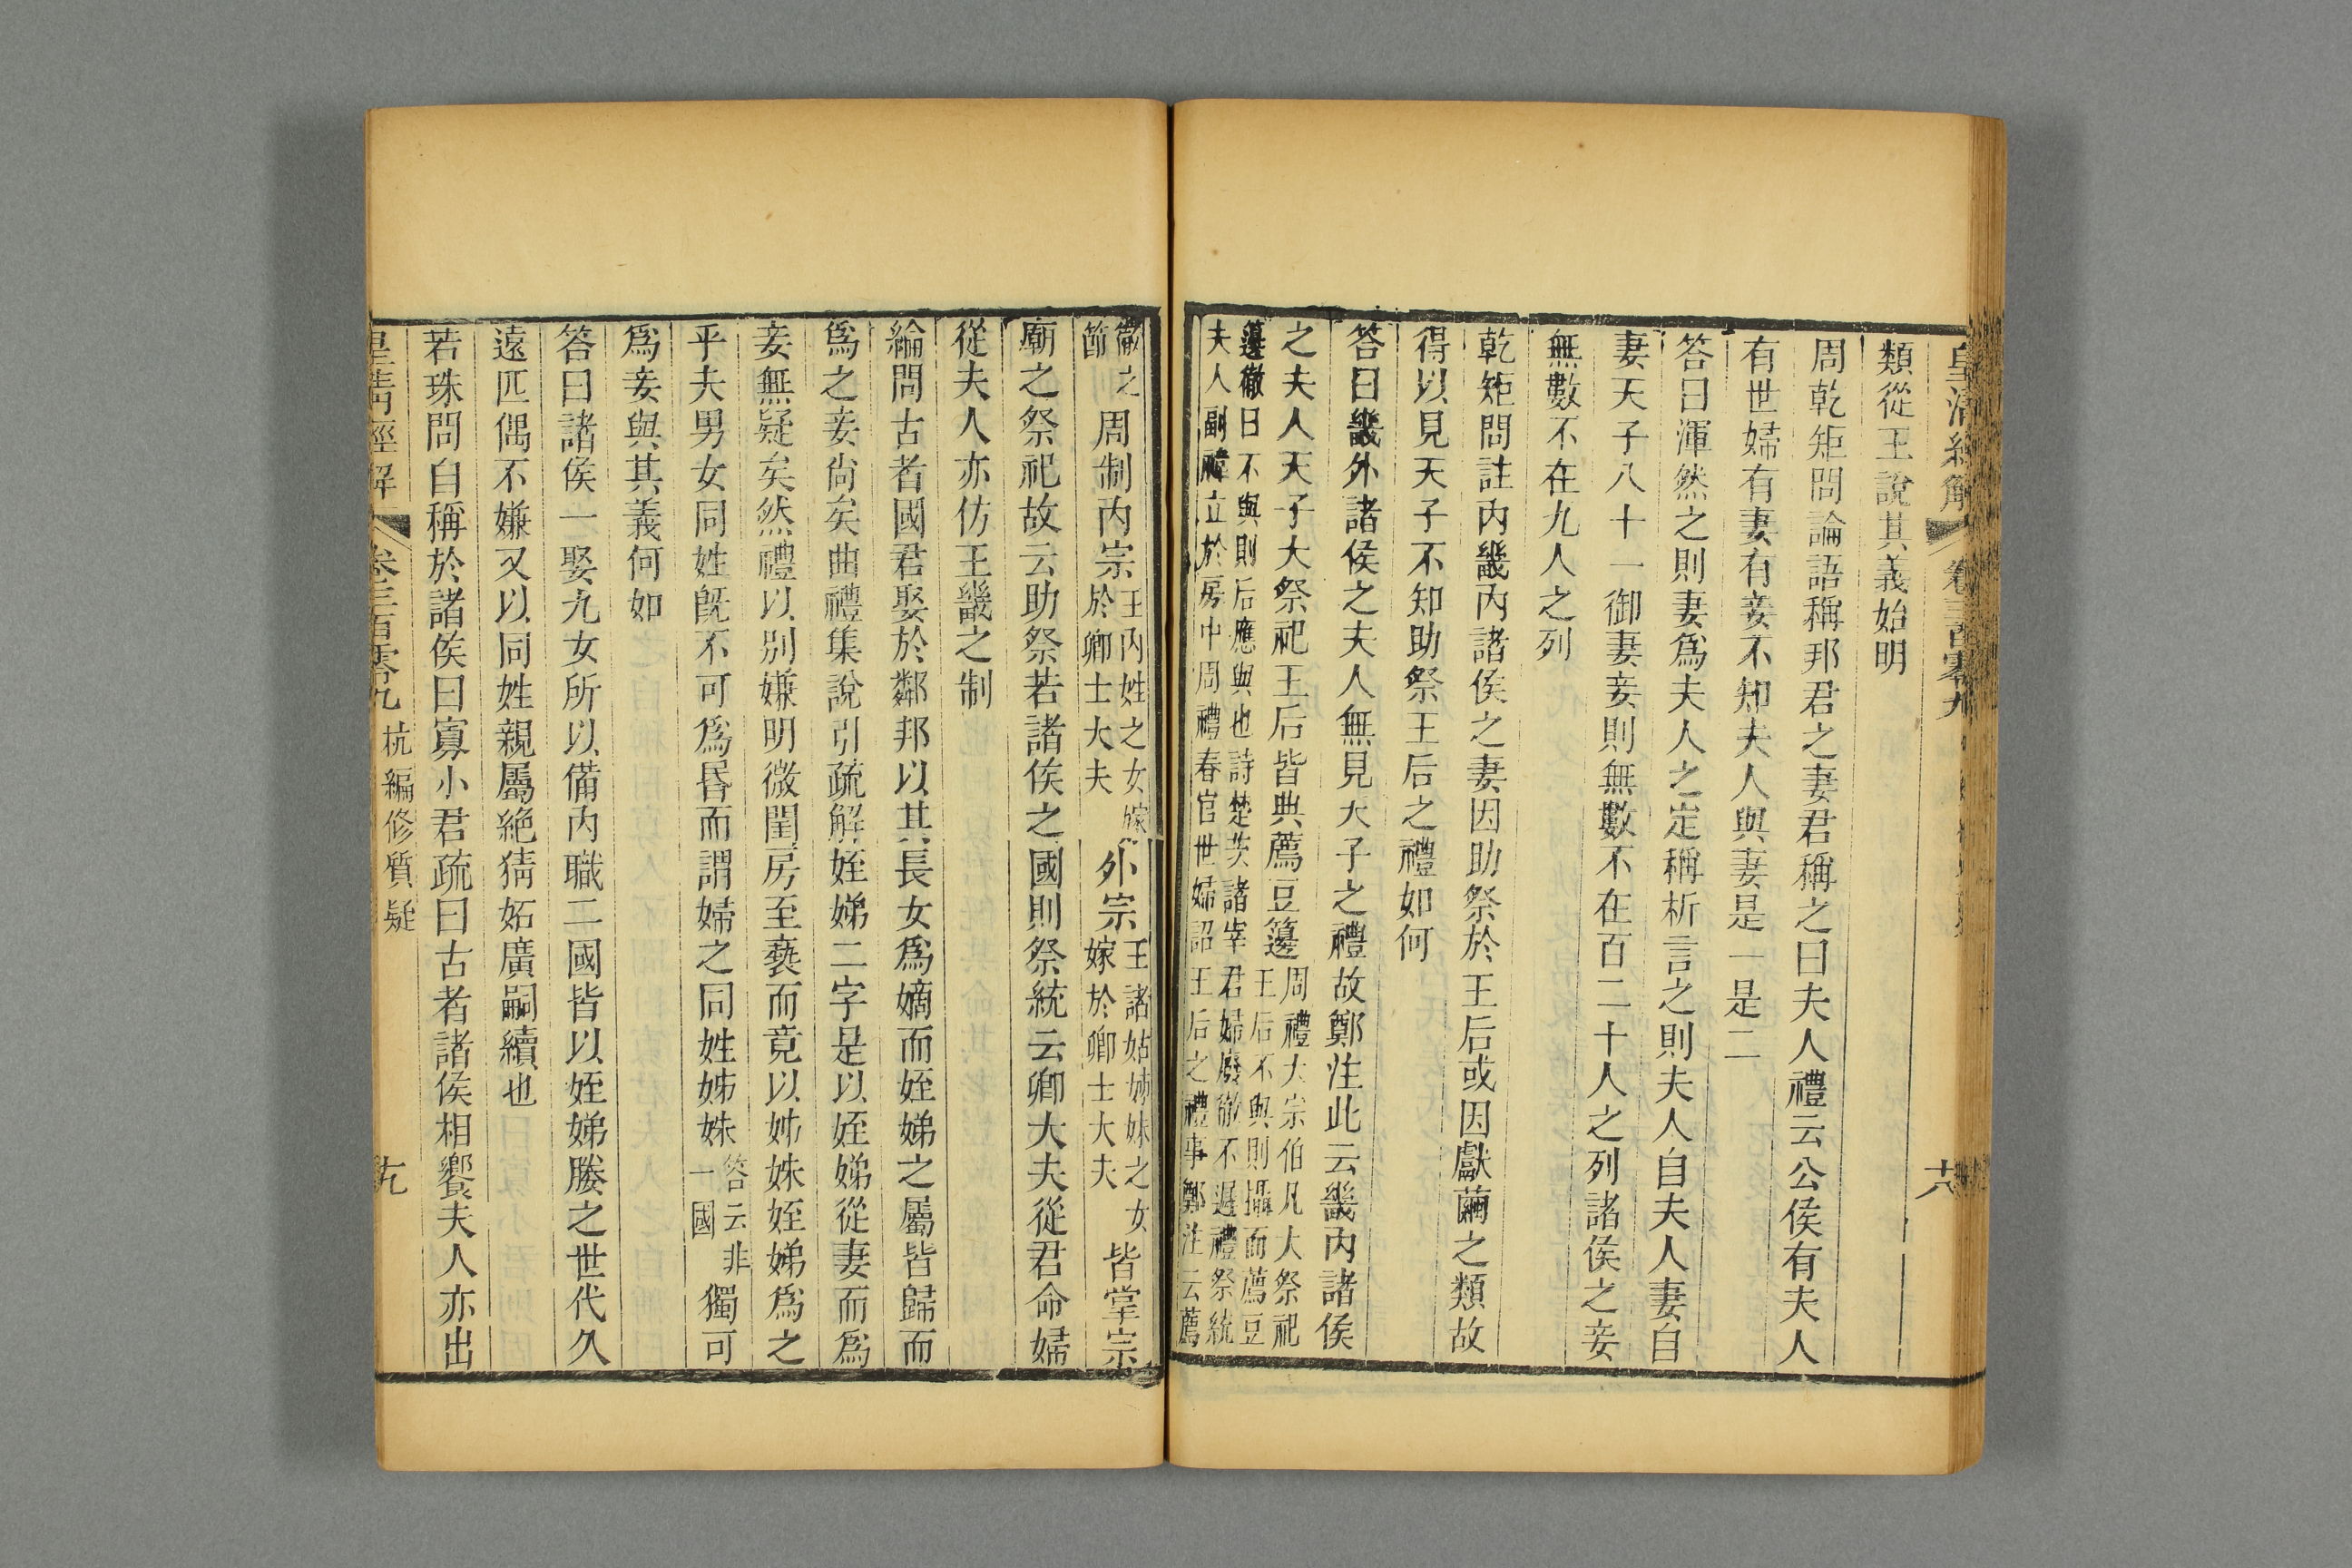 皇清經解
卷三百零九
六
類從王說其義始明
周乾矩問論語稱邦君之妻君稱之曰夫人禮云公侯有夫人
有世婦有妻有妾不知夫人與妻是一是二
答曰渾然之則妻為夫人之定稱析言之則夫人自夫人妻自
妻天子八十一御妻妾則無數不在百二十人之列諸侯之妾
無數不在九人之列
乾矩問註內畿內諸侯之妻因助祭於王后或因獻繭之類故
得以見天子不知助祭王后之禮如何
答曰畿外諸侯之夫人無見天子之禮故鄭注此云畿內諸侯
之夫人天子大祭祀王后皆與薦豆籩
周禮大宗伯凡大祭祀
王后不與則攝而薦豆
籩徹曰不與則后應與也詩楚茨諸宰君婦廢徹不遲禮祭統
夫人副褘立於房中周禮春官世婦詔王后之禮事鄭注云薦
徹之
節
周制內宗
王內姓之女嫁
於卿士大夫
外宗
王諸姑姊妹之女
嫁於卿士大夫
皆掌宗
廟之祭祀故云助祭若諸侯之國則祭統云卿大夫從君命婦
從夫人亦仿王畿之制
綸問古者國君娶於鄰邦以其長女為嫡而姪娣之屬皆歸而
為之妾尚矣曲禮集說引疏解姪娣二字是以姪娣從妻而為
妾無疑矣然禮以別嫌明微閨房至褻而竟以姊妹姪娣為之
乎夫男女同姓旣不可為昏而謂婦之同姓姊妹
答云非
一國
獨可
為妾與其義何如
答曰諸侯一娶九女所以備內職二國皆以姪娣媵之世代久
遠匹偶不嫌又以同姓親屬絕猜妬廣嗣續也
若珠問自稱於諸侯曰寡小君疏曰古者諸侯相饗夫人亦出
皇清經解
卷三百零九
杭編修質疑
九